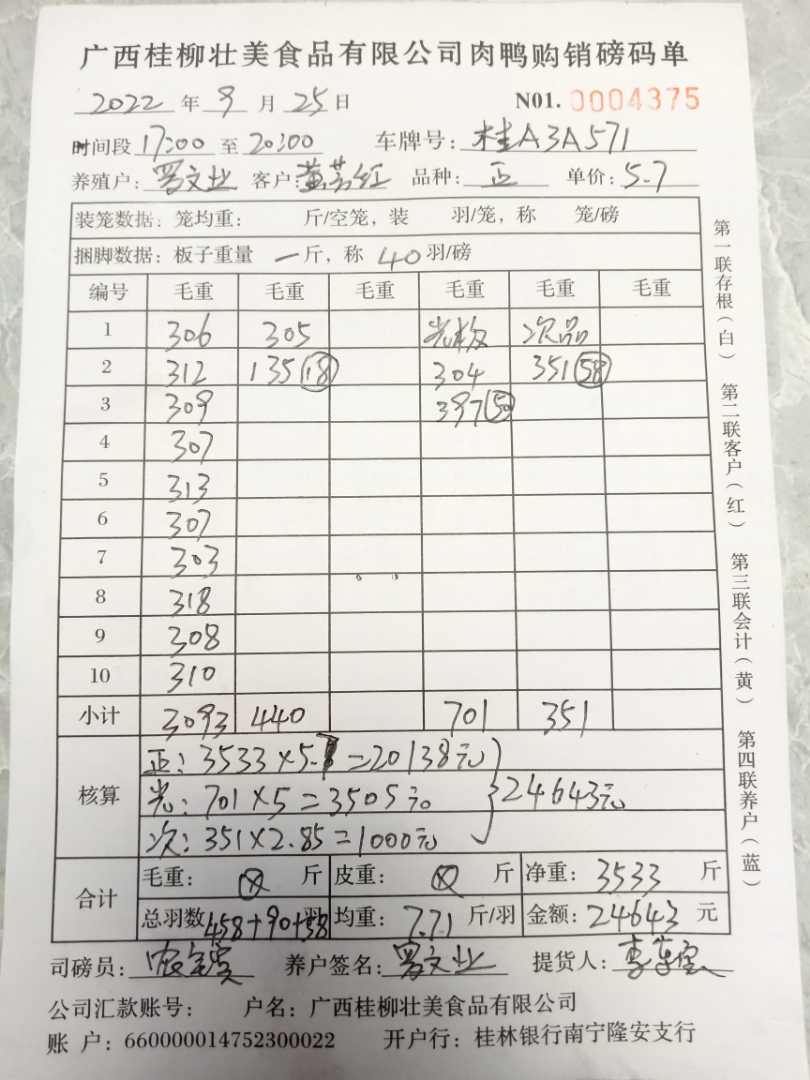 广西桂柳壮美食品有限公司肉鸭购销磅码单
2022 年 9 月 25 日 N01. 0004375
时间段 17:00 至 20:00 车牌号: 桂A3A571
养殖户: 罗文业 客户: 黄芬红 品种: 正 单价: 5.7
装笼数据: 笼均重: 斤/空笼, 装 羽/笼, 称 笼/磅
捆脚数据: 板子重量 一 斤, 称 40 羽/磅
编号 毛重 毛重 毛重 毛重 毛重 毛重
1 306 305 光板 次品
2 312 135 (18) 304 351 (58)
3 309 397 (50)
4 307
5 313
6 307
7 303
8 318
9 308
10 310
小计 3093 440 701 351
核算
正: 3533×5.7=20138元
光: 701×5=3505元 24643元
次: 351×2.85=1000元
合计
毛重: ⊗ 斤 皮重: ⊗ 斤 净重: 3533 斤
总羽数 458+90+58 羽 均重: 7.71 斤/羽 金额: 24643 元
司磅员: 养户签名: 罗文业 提货人:
公司汇款账号: 户名: 广西桂柳壮美食品有限公司
账 户: 660000014752300022 开户行: 桂林银行南宁隆安支行
第一联存根(白)
第二联客户(红)
第三联会计(黄)
第四联养户(蓝)